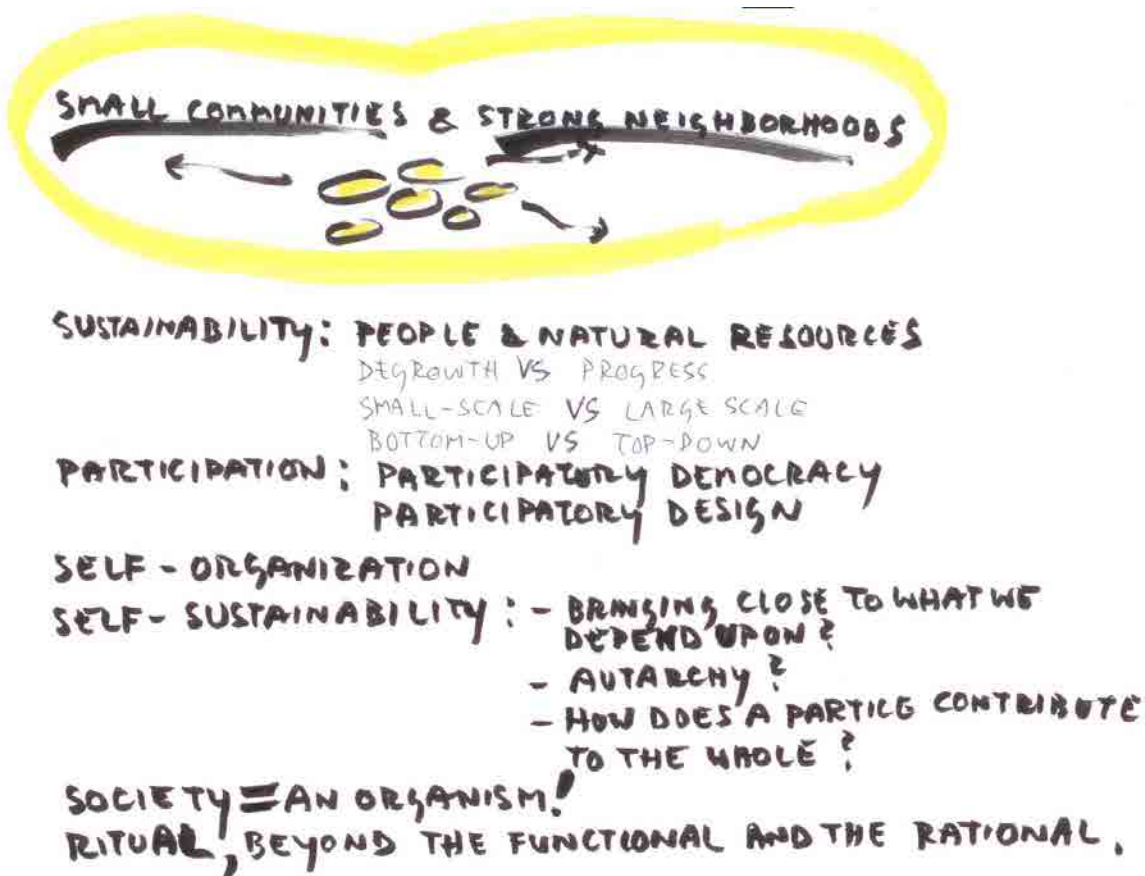 SMALL COMMUNITIES & STRONG NEIGHBORHOODS
SUSTAINABILITY: PEOPLE & NATURAL RESOURCES
DEGROWTH VS PROGRESS
SMALL-SCALE VS LARGE SCALE
BOTTOM-UP VS TOP-DOWN
PARTICIPATION: PARTICIPATORY DEMOCRACY
PARTICIPATORY DESIGN
SELF-ORGANIZATION
SELF-SUSTAINABILITY: - BRINGING CLOSE TO WHAT WE
DEPEND UPON?
- AUTARCHY?
- HOW DOES A PARTICE CONTRIBUTE
TO THE WHOLE?
SOCIETY = AN ORGANISM!
RITUAL, BEYOND THE FUNCTIONAL AND THE RATIONAL.